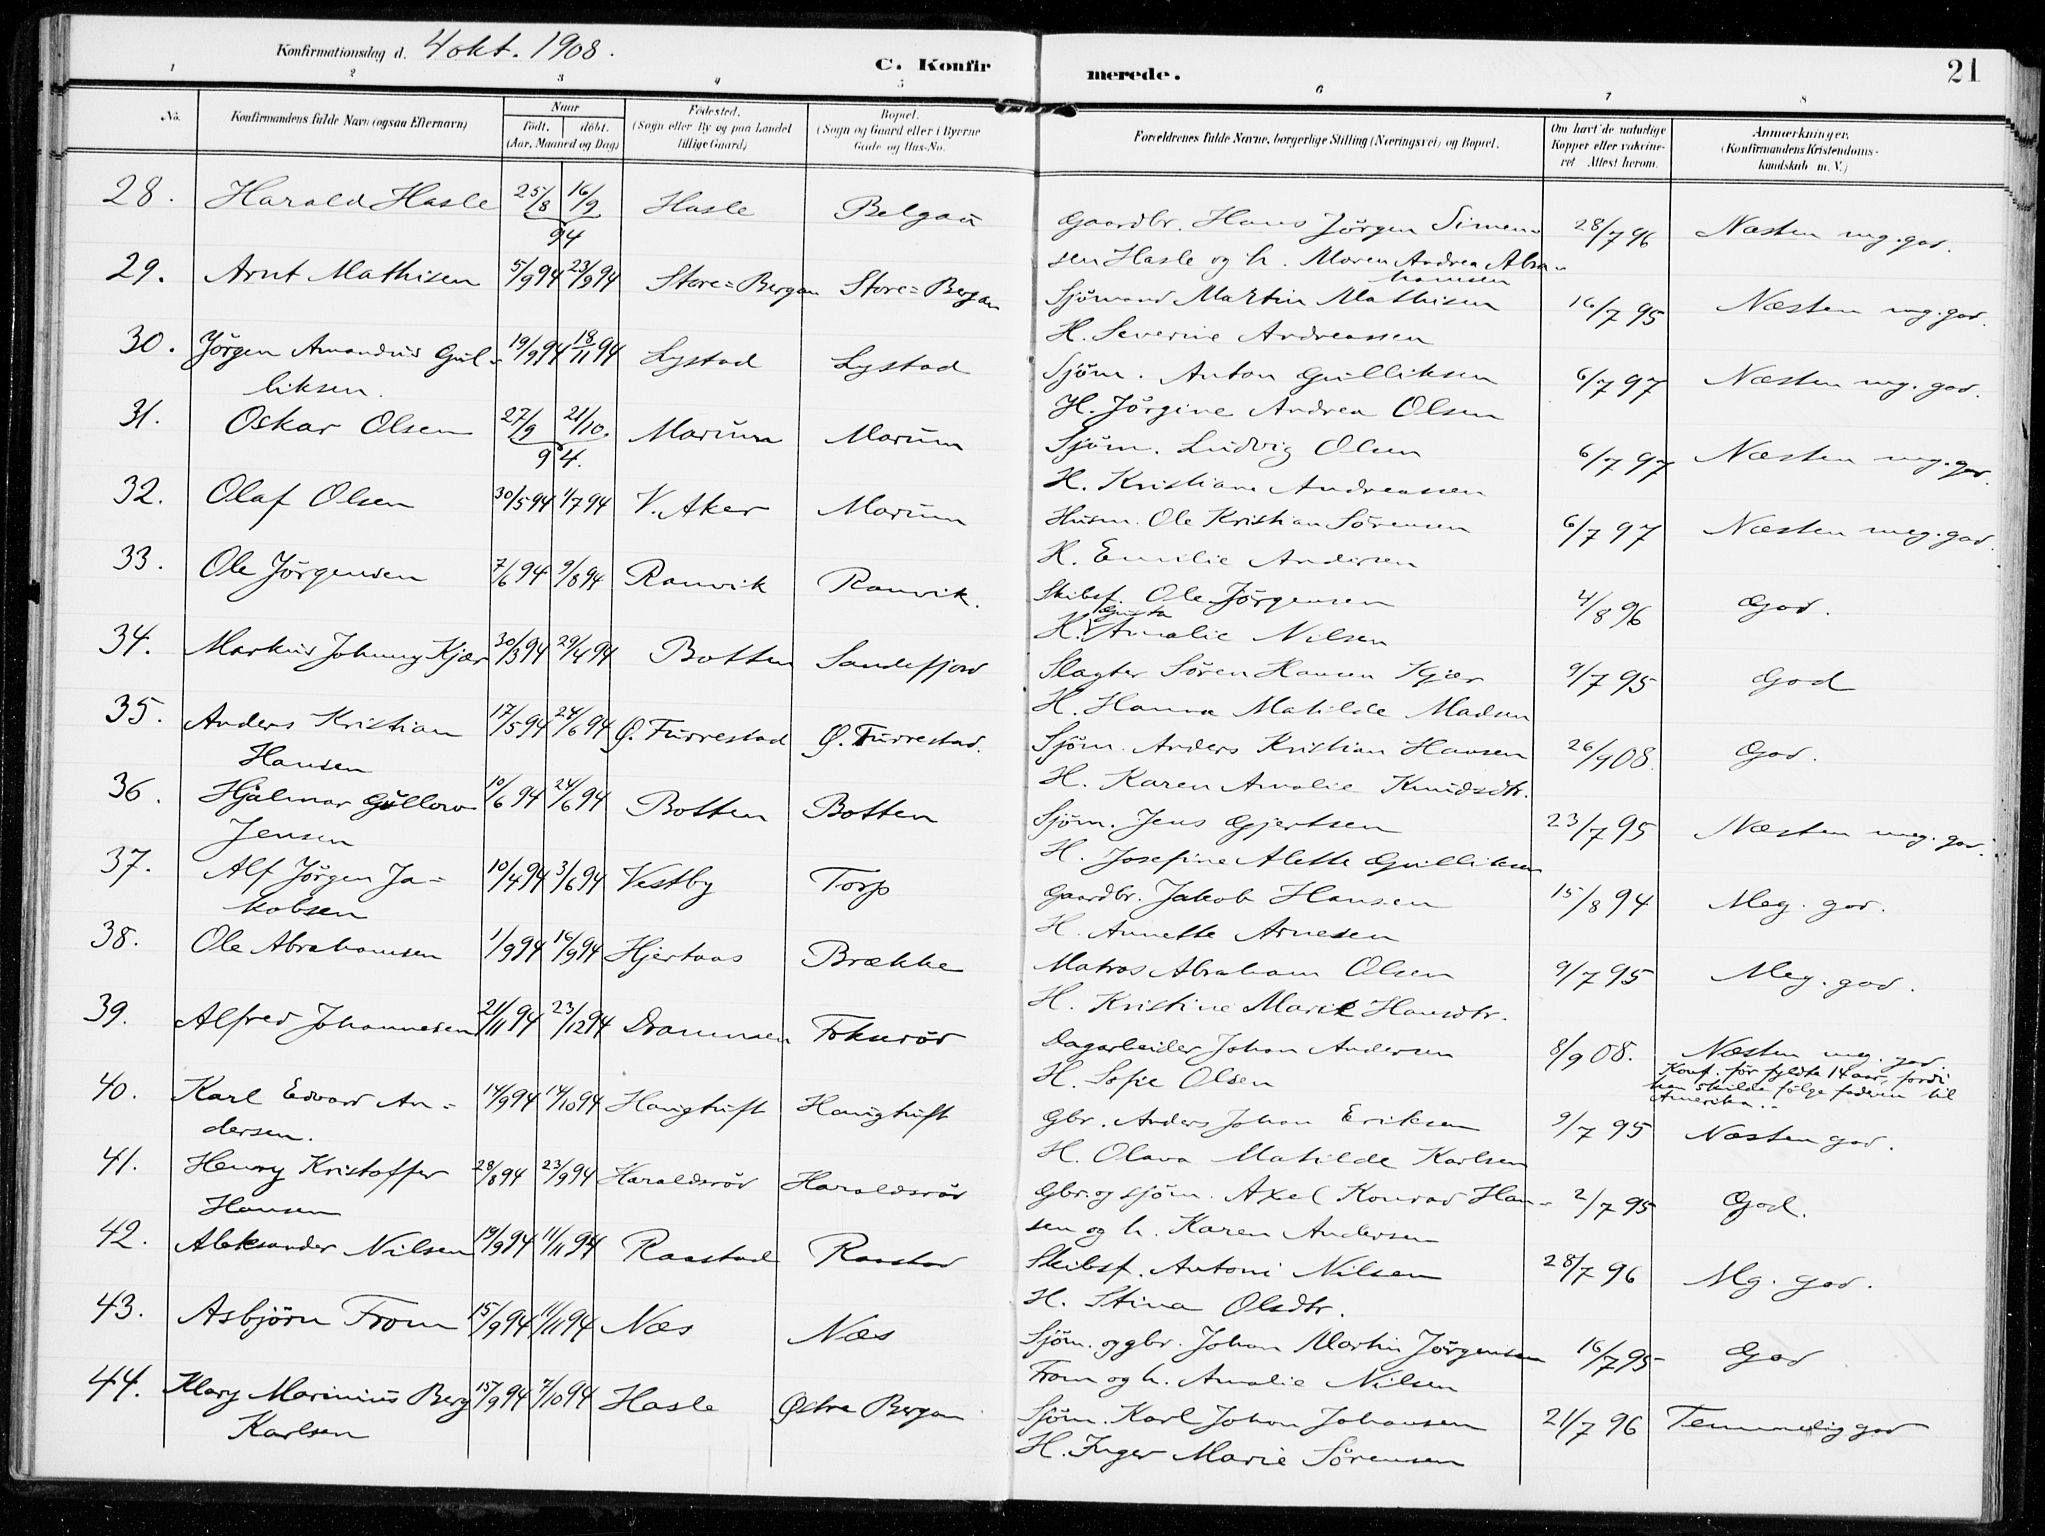 Konfirmationsdag d. 4 okt. 1908.
C. Konfirmerede.
21
1 2 3 4 5 6 7 8
No.
Konfirmandens fulde Navn (ogsaa Efternavn)
Naar
födt. döbt.
(Aar, Maaned og Dag)
Födested.
(Sogn eller By og paa Landet
tillige Gaard)
Bopæl.
(Sogn og Gaard eller i Byerne
Gade og Hus-No.
Forældrenes fulde Navne, borgerlige Stilling (Næringsvei) og Bopæl.
Om havt de naturlige
Kopper eller vakcine-
ret Attest herom.
Anmærkninger.
(Konfirmandens Kristendoms-
kundskab m. V.)
28. Harald Hasle 25/8 16/9 94 Hasle Belgau Gaardbr. Hans Jørgen Simen- 28/7 96 Næsten mg. god.
sen Hasle og h. Maren Andrea Abra-
hamsen
29. Arnt Mathisen 5/9 94 23/9 94 Store=Bergan Store=Bergan Sjømand Martin Mathisen 16/7 95 Næsten mg. god.
H. Severine Andreassen
30. Jørgen Amandus Gul- 19/9 94 18/11 94 Lystad Lystad Sjøm. Anton Gulliksen 6/7 97 Næsten mg. god.
liksen. H. Jörgine Andrea Olsen
31. Oskar Olsen 27/9 21/10. 94. Marum Marum Sjøm. Ludvig Olsen 6/7 97 Næsten mg. god.
H. Kristiane Andreassen
32. Olaf Olsen 30/5 94 1/7 94 V. Aker Marum Husm. Ole Kristian Sørensen 6/7 97 Næsten meg. god.
H. Emilie Andersen
33. Ole Jørgensen 7/6 94 9/8 94 Ranvik Ranvik. Skibsf. Ole Jörgensen 4/8 96 God.
H. Gusta Amalie Nilsen
34. Markus Johnny Kjær 30/3 94 29/4 94 Botten Sandefjord Slagter Søren Hansen Kjær 9/7 95 God
H. Hanna Matilde Madsen
35. Anders Kristian 17/5 94 24/6 94 Ø. Furrestad Ø. Furrestad. Sjøm. Anders Kristian Hansen 26/9 08. God.
Hansen H. Karen Amalie Knudsdtr.
36. Hjalmar Gullow 10/6 94 24/6 94 Botten Botten Sjøm. Jens Gjertsen 23/7 95 Næsten meg. god.
Jensen H. Josefine Alette Gulliksen
37. Alf Jørgen Ja- 10/4 94 3/6 94 Vestby Torp Gaardbr. Jakob Hansen 15/8 94 Meg. god.
kobsen H. Annette Arnesen
38. Ole Abrahamsen 1/9 94 16/9 94 Hjertaas Brække Matros Abraham Olsen 9/7 95 Meg. god.
H. Kristine Marie Hansdtr.
39. Alfred Johannesen 21/11 94 23/12 94 Drammen Fokserød Dagarbeider Johan Andersen 8/9 08. Næsten mg. god.
H. Sofie Olsen Konf. før fyldte 14 aar, fordi
han skulde følge faderen til
Amerika.
40. Karl Edvard An- 14/9 94 14/10 94 Haugtuft Haugtuft Gbr. Anders Johan Eriksen 9/7 95 Næsten god.
dersen. H. Olava Matilde Karlsen
41. Henry Kristoffer 28/8 94 23/9 94 Haraldsrød Haraldsrød Gbr. og sjøm. Axel Konrad Han- 2/7 95 God.
Hansen sen og h. Karen Andersen
42. Aleksander Nilsen 19/9 94 11/11 94 Raastad Raastad Skibsf. Antoni Nilsen 28/7 96 Mg. god.
H. Stina Olsdtr.
43. Asbjörn From 15/9 94 11/11 94 Næs Næs Sjøm. og gbr. Johan Martin Jørgensen 16/7 95 God
From og h. Amalie Nilsen
44. Klary Marinius Berg 15/9 94 7/10 94 Hasle Østre Bergan Sjøm. Karl Johan Johansen 21/7 96 Temmelig god
Karlsen H. Inger Marie Sörensen